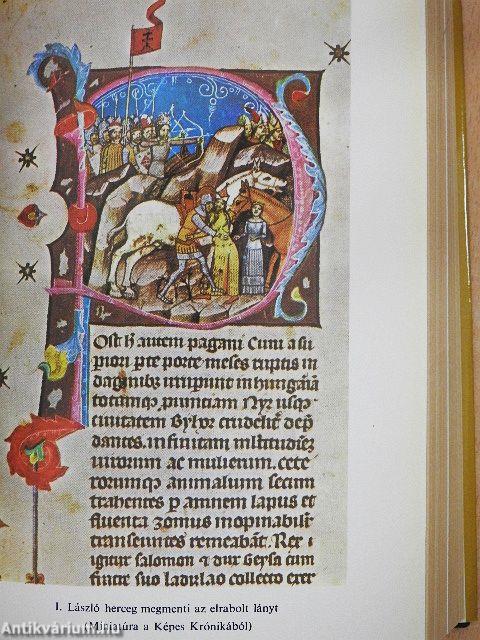 Ost h autem pagani Cuni a su
piori pte porte meses ruptis in
daginibz irrupunt in hungaͥam
totamqz puintiam Nyr usqz
ciuitatem Byhor crudelit depͣ
dantes. infinitam mltitudinez
uirorum ac mulierum. cete
rorumqz animalium secum
trahentes p amnem lapus et
fluenta zomus inopinabilr
transeuntes remeabāt. Rex i
gitur salomon & dux Geysa cum
fratre suo ladislao collecto exer
I. László herceg megmenti az elrabolt lányt
(Miniatúra a Képes Krónikából)
Antikvárium.hu